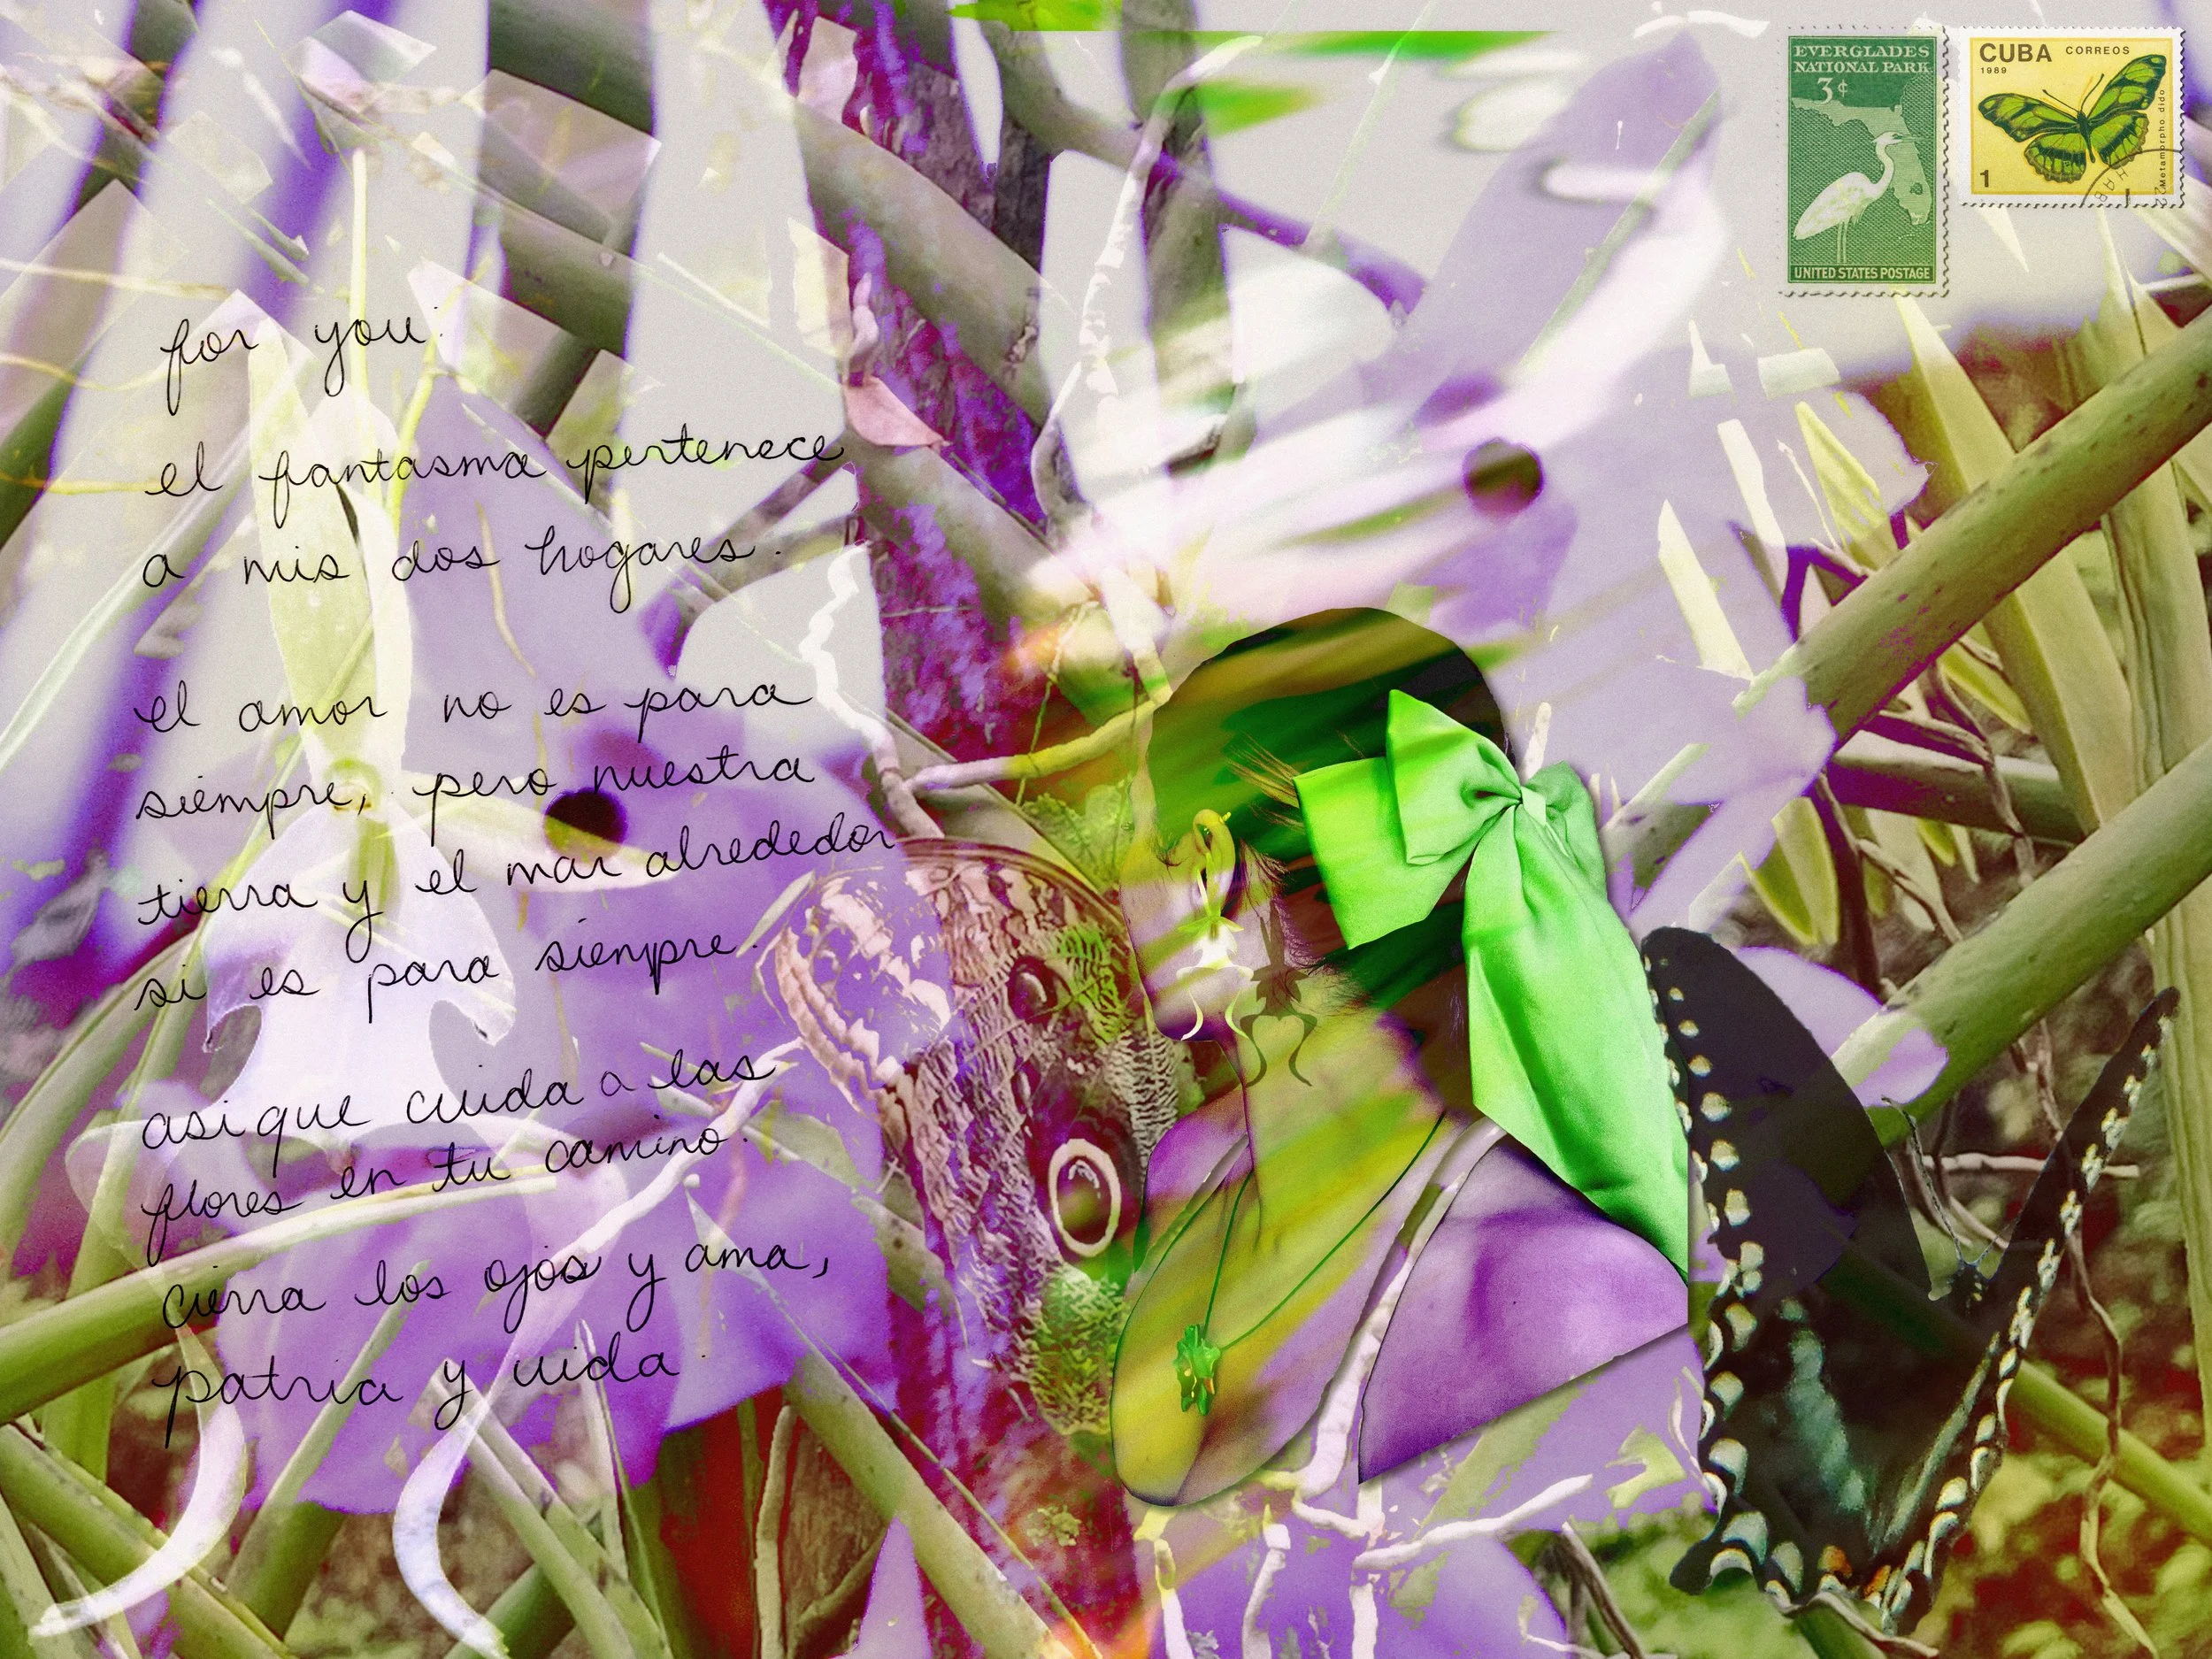 EVERGLADES
NATIONAL PARK
3¢
UNITED STATES POSTAGE
CUBA CORREOS
1989
1
Metamorpho dido
for you:
el fantasma pertenece
a mis dos hogares.
el amor no es para
siempre, pero nuestra
tierra y el mar alrededor
si es para siempre.
asi que cuida a las
flores en tu camino.
cierra los ojos y ama,
patria y vida.